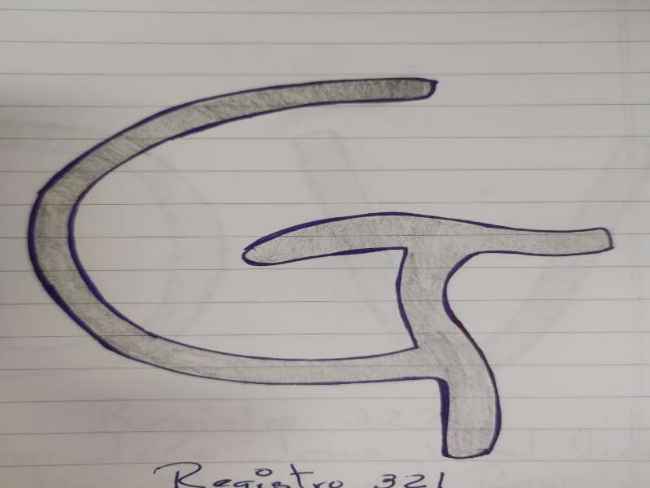 G
Registro 321